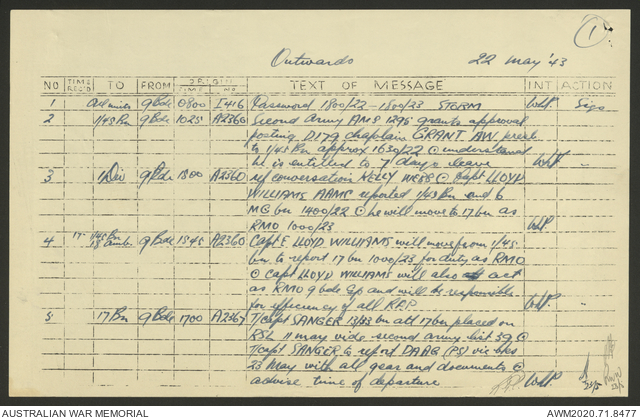 1
Outwards 22 May '43
NO TIME REC'D TO FROM ORIGIN TIME NO TEXT OF MESSAGE INT ACTION
1 All units 9 Bde 0800 I416 Password 1800/22 - 1800/23 STERM Sigs
2 1/45 Bn 9 Bde 1025 A2360 Second Army AMS 1296 grants approval
posting D179 chaplain GRANT AW
to 1/45 Bn approx 1630/22 @ understand
he is entitled to 7 days leave "
3 1 Div 9 Bde 1800 A2360 ref conversation KELLY WEBB @ Capt LLOYD
WILLIAMS AAMC reported 1/43 Bn and 6
MG bn 1400/22 @ he will move to 17 bn as
RMO 1000/23
4 17 - 1/45 Bn 9 Bde 1545 A2360 Capt E LLOYD WILLIAMS will move from 1/45
18 amb bn to report 17 bn 1000/23 for duty as RMO
@ Capt LLOYD WILLIAMS will also act
as RMO 9 bde Gp and will be responsible
for efficiency of all R.A.P. "
5 17 Bn 9 Bde 1700 A2367 T/Capt SANGER 13/33 bn att 17 bn placed on
RSL 11 may vide second army list 39 @
T/Capt SANGER to report DAAG (PS) vic L of C
23 May with all gear and documents @
advise time of departure
AUSTRALIAN WAR MEMORIAL AWM2020.71.8477